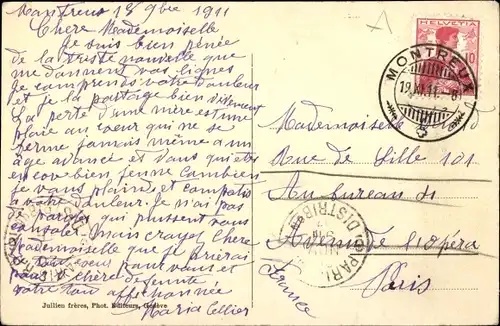 Montreux 18 9bre 1911
Chere Mademoiselle
Je suis bien peinée
de la triste nouvelle que
me donnent vos lignes
Je comprends votre douleur
et je la partage bien
La perte d'une mère est une
plaie au cœur qui ne se
ferme jamais même a un
âge avancé et vous qui êtes
encore bien jeune Combien
je vous plains et compatis
a votre douleur. Je n'ai pas
de paroles qui puissent vous
consoler Mais croyez Chere
Mademoiselle que je prierai
pour vous et
votre chère defunte
votre tou affectionnée
Maria Cellier
HELVETIA
10
MONTREUX
19.XI.11. 8
5
Mademoiselle
Rue de Lille 101
Au bureau de
Avenue de l'Opéra
Paris
France
PARIS
DISTRIBON
Jullien frères, Phot. Editeurs, Genève